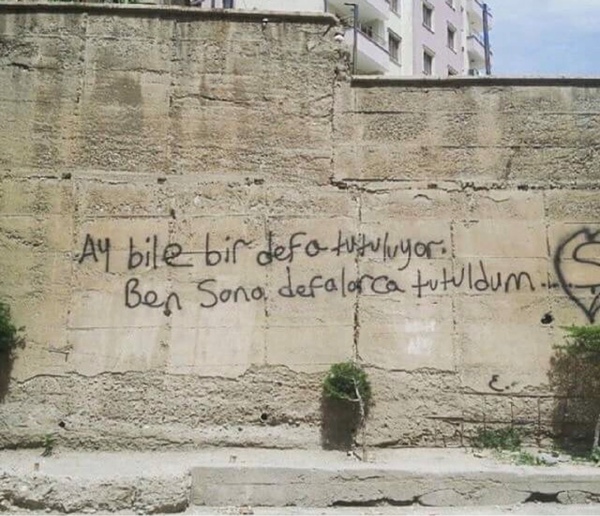 Ay bile bir defa tutuluyor.
Ben Sana defalarca tutuldum...
S
ε..